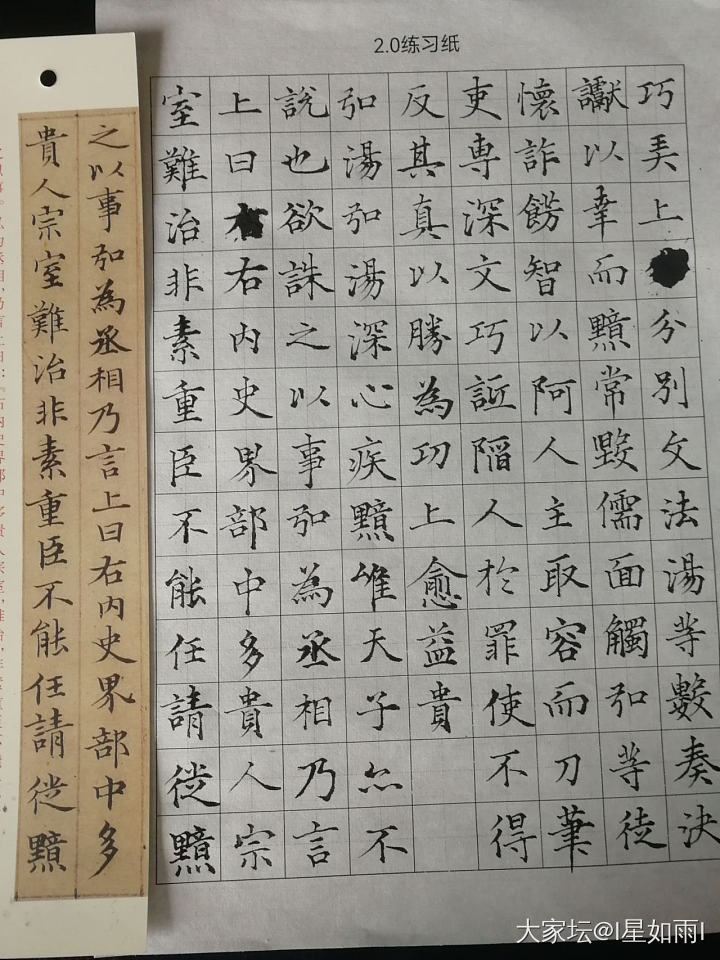 2.0练习纸
巧弄上分別文法湯等數奏決
讞以幸而黯常毀儒面觸弘等徒
懷詐飾智以阿人主取容而刀筆
吏專深文巧詆陷人於罪使不得
反其真以勝為功上愈益貴
弘湯弘湯深心疾黯唯天子亦不
說也欲誅之以事弘為丞相乃言
上曰右內史界部中多貴人宗
室難治非素重臣不能任請徙黯
之以事弘為丞相乃言上曰右內史界部中多
貴人宗室難治非素重臣不能任請徙黯
大家坛@I星如雨I